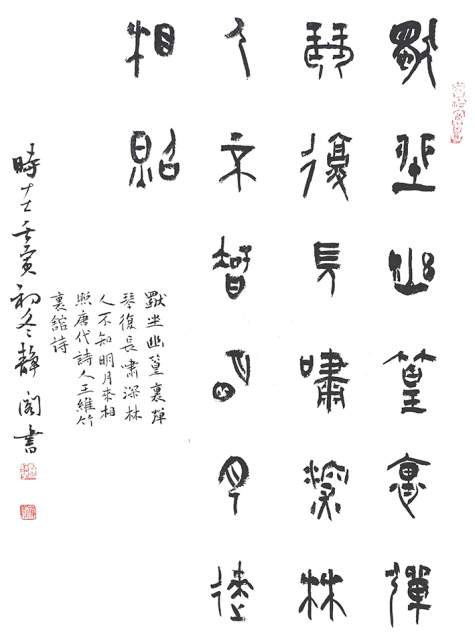 獨坐幽篁裏彈
琴復長嘯深林
人不知明月來
相照
獸坐幽篁裏弹
琴復長嘯深林
人不知明月來相
照唐代詩人王維竹
裏館詩
時在壬寅初冬靜閣書